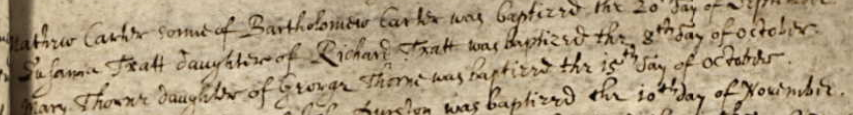 Mathew Carter sonne of Bartholomew Carter was baptized the 20 day of September
Susanna Tratt daughter of Richard Tratt was baptized the 8th day of October.
Mary Thorne daughter of George Thorne was baptized the 15th day of October.
was baptized the 10th day of November.